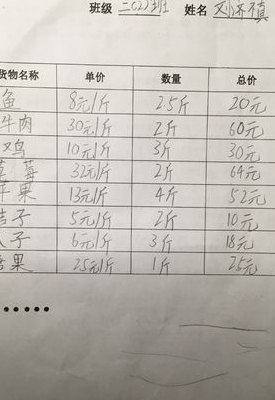 班级 三(2)班 姓名
货物名称 单价 数量 总价
鱼 8元/斤 2.5斤 20元
牛肉 30元/斤 2斤 60元
鸡 10元/斤 3斤 30元
草莓 32元/斤 2斤 64元
苹果 13元/斤 4斤 52元
桔子 5元/斤 2斤 10元
子 6元/斤 3斤 18元
果 25元/斤 1斤 25元